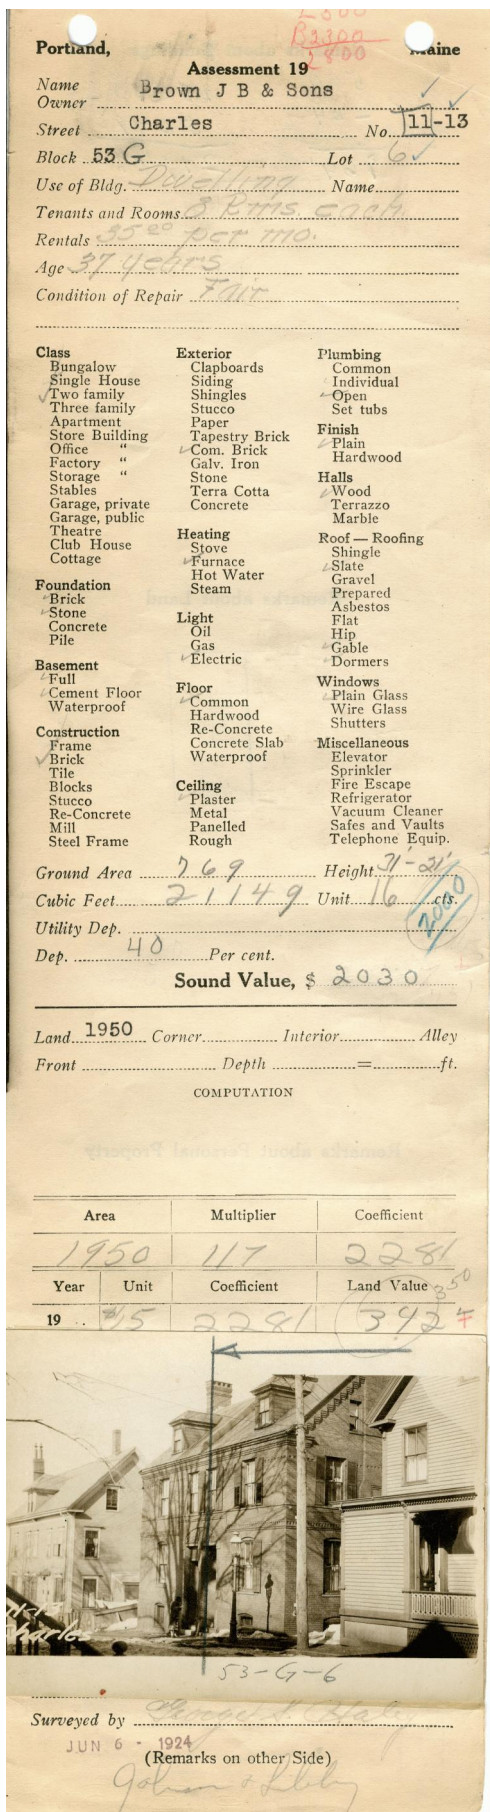 B2300
2800
Portland, Maine
Assessment 19
Name
Owner Brown J B & Sons
Street Charles No. 11-13
Block 53 G Lot 6
Use of Bldg. Dwelling Name
Tenants and Rooms 8 Rms. each.
Rentals 35 00 per mo.
Age 37 years
Condition of Repair Fair
Class
Bungalow
Single House
Two family
Three family
Apartment
Store Building
Office "
Factory "
Storage "
Stables
Garage, private
Garage, public
Theatre
Club House
Cottage
Foundation
Brick
Stone
Concrete
Pile
Basement
Full
Cement Floor
Waterproof
Construction
Frame
Brick
Tile
Blocks
Stucco
Re-Concrete
Mill
Steel Frame
Exterior
Clapboards
Siding
Shingles
Stucco
Paper
Tapestry Brick
Com. Brick
Galv. Iron
Stone
Terra Cotta
Concrete
Heating
Stove
Furnace
Hot Water
Steam
Light
Oil
Gas
Electric
Floor
Common
Hardwood
Re-Concrete
Concrete Slab
Waterproof
Ceiling
Plaster
Metal
Panelled
Rough
Plumbing
Common
Individual
Open
Set tubs
Finish
Plain
Hardwood
Halls
Wood
Terrazzo
Marble
Roof — Roofing
Shingle
Slate
Gravel
Prepared
Asbestos
Flat
Hip
Gable
Dormers
Windows
Plain Glass
Wire Glass
Shutters
Miscellaneous
Elevator
Sprinkler
Fire Escape
Refrigerator
Vacuum Cleaner
Safes and Vaults
Telephone Equip.
Ground Area 769 Height 31'-21'
Cubic Feet 21149 Unit 16 cts.
2000
Utility Dep.
Dep. 40 Per cent.
Sound Value, $ 2030
Land 1950 Corner Interior Alley
Front Depth = ft.
COMPUTATION
Area Multiplier Coefficient
1950 117 2281
Year Unit Coefficient Land Value
350
19 .. $15 2281 342
Charles
53-G-6
Surveyed by George S. Haley
JUN 6 - 1924
(Remarks on other Side)